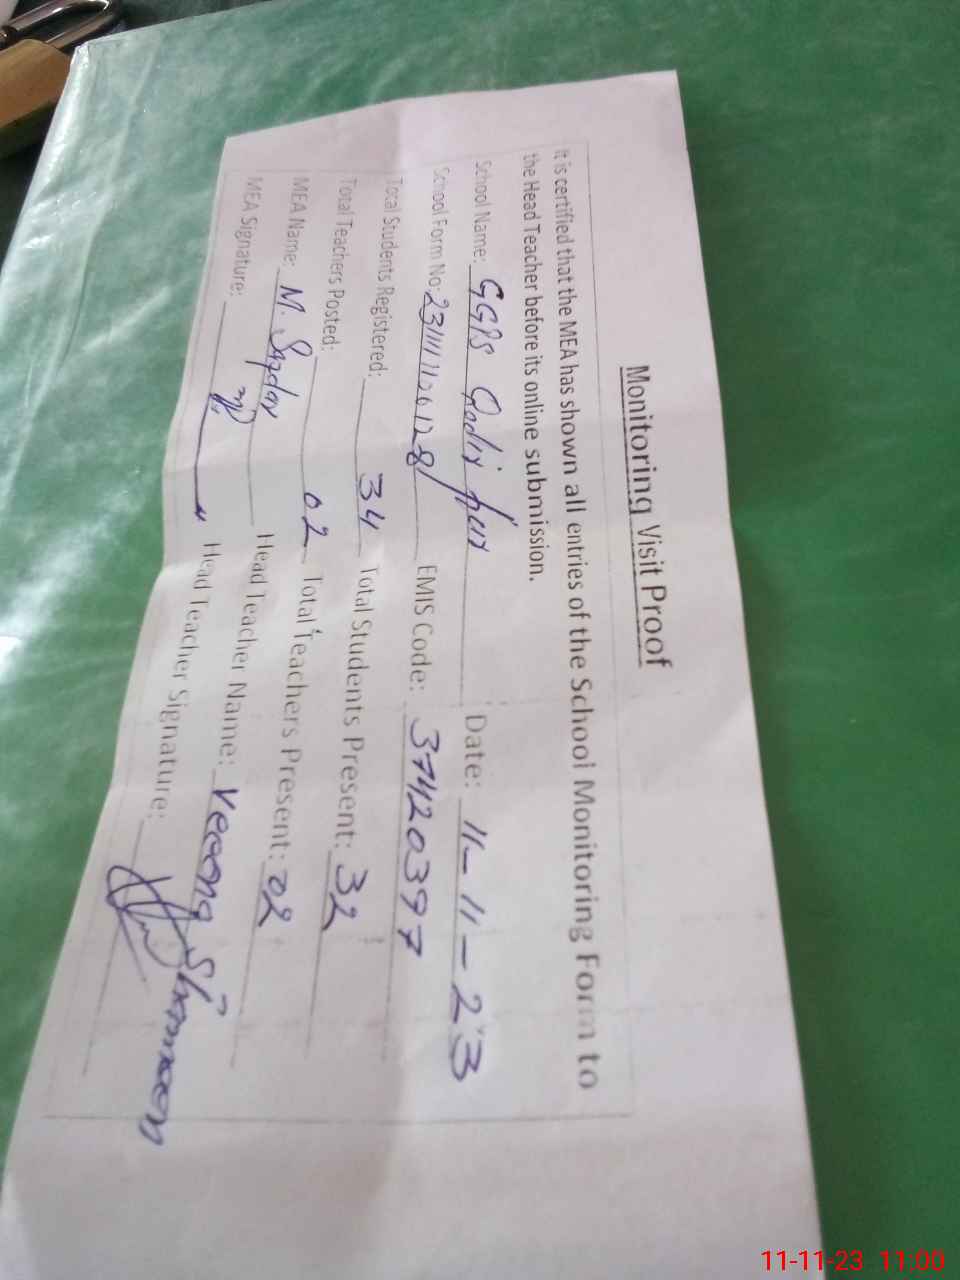 Monitoring Visit Proof
It is certified that the MEA has shown all entries of the School Monitoring Form to
the Head Teacher before its online submission.
School Name: GGPS Qadir pur Date: 11-11-23
School Form No: EMIS Code: 37420397
Total Students Registered: 34 Total Students Present: 32
Total Teachers Posted: 02 Total Teachers Present: 02
MEA Name: M. Safdar Head Teacher Name:
MEA Signature: Head Teacher Signature:
11-11-23 11:00